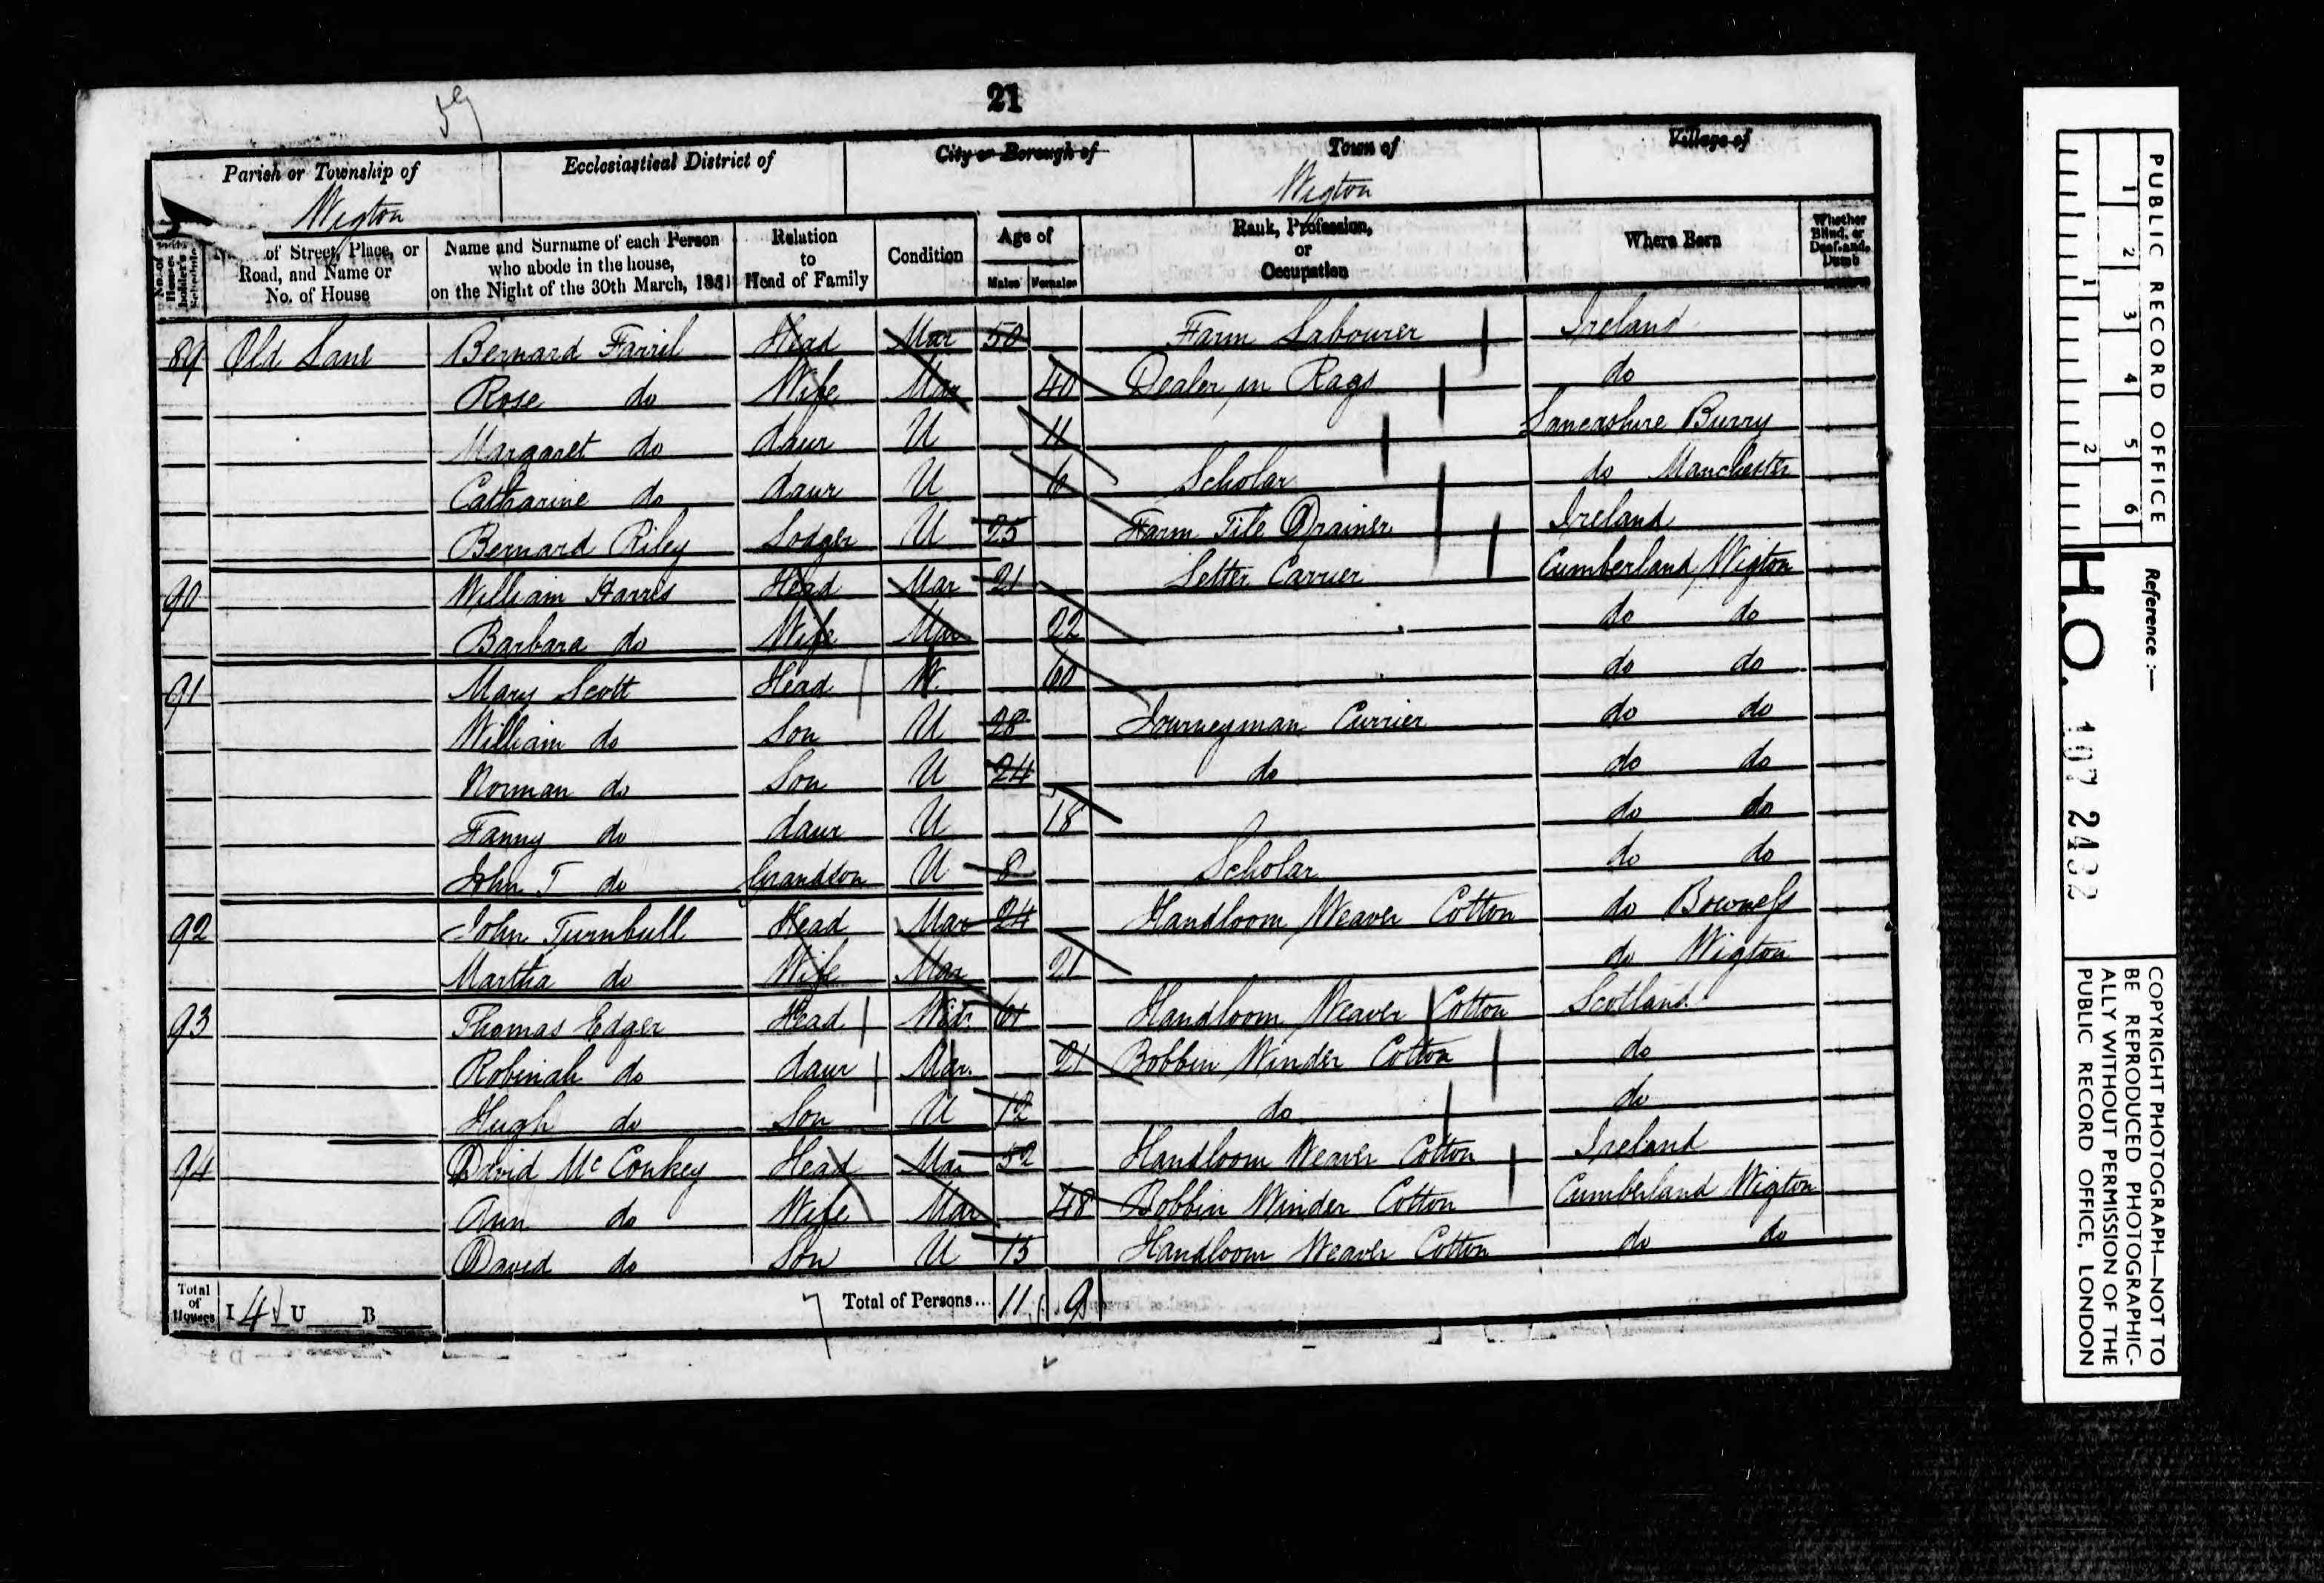 59
21
Parish or Township of
Wigton
Ecclesiastical District of
City or Borough of
Town of
Wigton
Village of
No. of House-holder's Schedule
of Street, Place, or Road, and Name or No. of House
Name and Surname of each Person who abode in the house, on the Night of the 30th March, 1851
Relation to Head of Family
Condition
Age of
Males Females
Rank, Profession, or Occupation
Where Born
Whether Blind, or Deaf-and-Dumb
89 Old Lane Bernard Farril Head Mar 50 Farm Labourer Ireland
Rose do Wife Mar 40 Dealer in Rags do
Margaret do daur U 11 Lancashire Burry
Catharine do daur U 6 Scholar do Manchester
Bernard Riley Lodger U 25 Farm Tile Drainer Ireland
90 William Harris Head Mar 21 Letter Carrier Cumberland Wigton
Barbara do Wife Mar 22 do do
91 Mary Scott Head W. 60 do do
William do Son U 28 Journeyman Currier do do
Norman do Son U 24 do do do
Fanny do daur U 18 do do
John T do Grandson U 8 Scholar do do
92 John Turnbull Head Mar 24 Handloom Weaver Cotton do Bowness
Martha do Wife Mar 21 do Wigton
93 Thomas Edger Head Widr 61 Handloom Weaver Cotton Scotland
Robinah do daur Mar. 21 Bobbin Winder Cotton do
Hugh do Son U 12 do do
94 David Mc Conkey Head Mar 52 Handloom Weaver Cotton Ireland
Ann do Wife Mar 48 Bobbin Winder Cotton Cumberland Wigton
David do Son U 15 Handloom Weaver Cotton do do
Total of Houses I 4 U B Total of Persons... 11 9
PUBLIC RECORD OFFICE
1 2 3 4 5 6
1 2
Reference :—
H.O. 107 2432
COPYRIGHT PHOTOGRAPH—NOT TO
BE REPRODUCED PHOTOGRAPHIC-
ALLY WITHOUT PERMISSION OF THE
PUBLIC RECORD OFFICE, LONDON